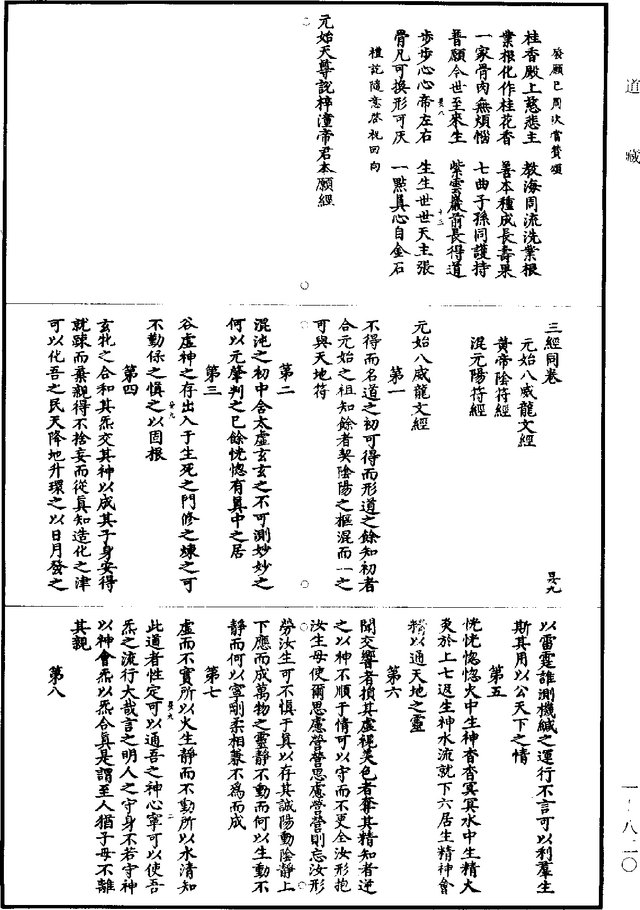 道藏
發願已周次當贊頌
桂香殿上慈悲主　教海周流洗業根
業根化作桂花香　善本種成長壽果
一家骨肉無煩惱　七曲子孫同護持
普願今世至來生　紫雲巖前長得道
步步心心帝左右　生生世世天主張
骨凡可換形可厌　一點真心自金石
禮訖隨意啓祝回向
元始天尊說梓潼帝君本願經
三經同卷
元始八威龍文經
黃帝陰符經
混元陽符經
元始八威龍文經
第一
不得而名道之初可得而形道之餘知初者
合元始之祖知餘者契陰陽之樞混而一之
可與天地符
第二
混沌之初中含太虛玄玄之不可測妙妙之
何以元肇判之已餘恍惚有真中之居
第三
谷虛神之存出入于生死之門修之煉之可
不勤保之慎之以固根
第四
玄牝之合和其炁交其神以成其子身安得
就踈而棄親得不捨妄而從真知造化之津
可以化吾之民天降地升環之以日月發之
以雷霆誰測機緘之運行不言可以利羣生
斯其用以公天下之情
第五
恍恍惚惚火中生神杳杳冥冥水中生精火
炎於上七返生神水流就下六居生精神會
精以通天地之靈
第六
聞交響者損其虛視美色者奪其精知者逆
之以神不順于情可以守而不更全汝形抱
汝生毋使爾思慮營營思慮營營則忘汝形
勞汝生可不慎于真以存其誠陽動陰靜上
下應而成萬物之靈靜不動而何以生動不
靜而何以寧剛柔相兼不為而成
第七
虛而不實所以火生靜而不動所以水清知
此道者性定可以通吾之神心寧可以使吾
炁之流行大哉言之明人之守身不若守神
以神會炁以炁合真是謂至人猶子母不離
其親
第八
一八二〇